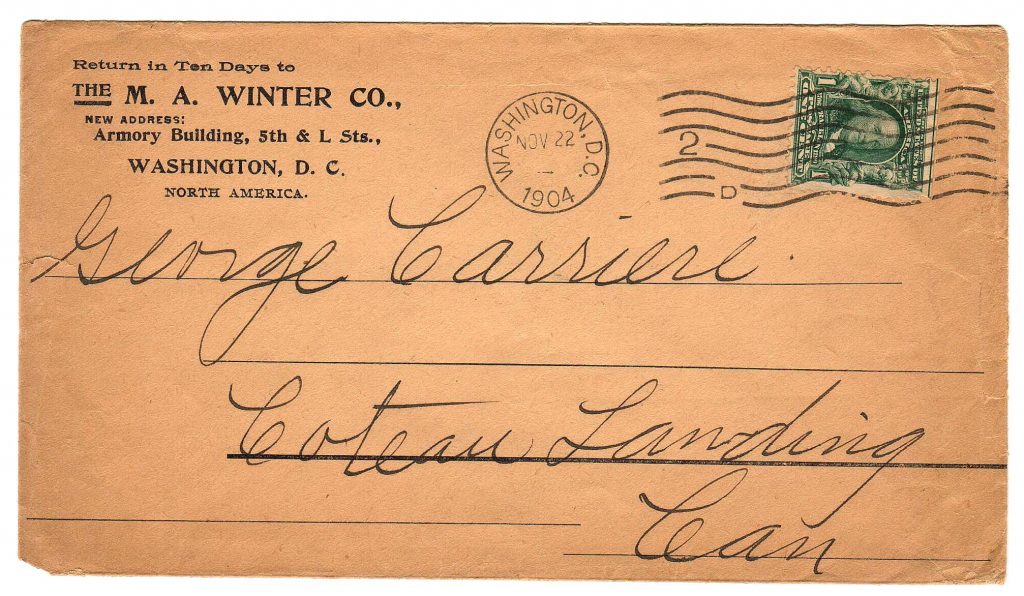 Return in Ten Days to
THE M. A. WINTER CO.,
NEW ADDRESS:
Armory Building, 5th & L Sts.,
WASHINGTON, D. C.
NORTH AMERICA.
WASHINGTON, D.C.
NOV 22
1904
2
D
1
1
George Carriere.
Coteau Landing
Can